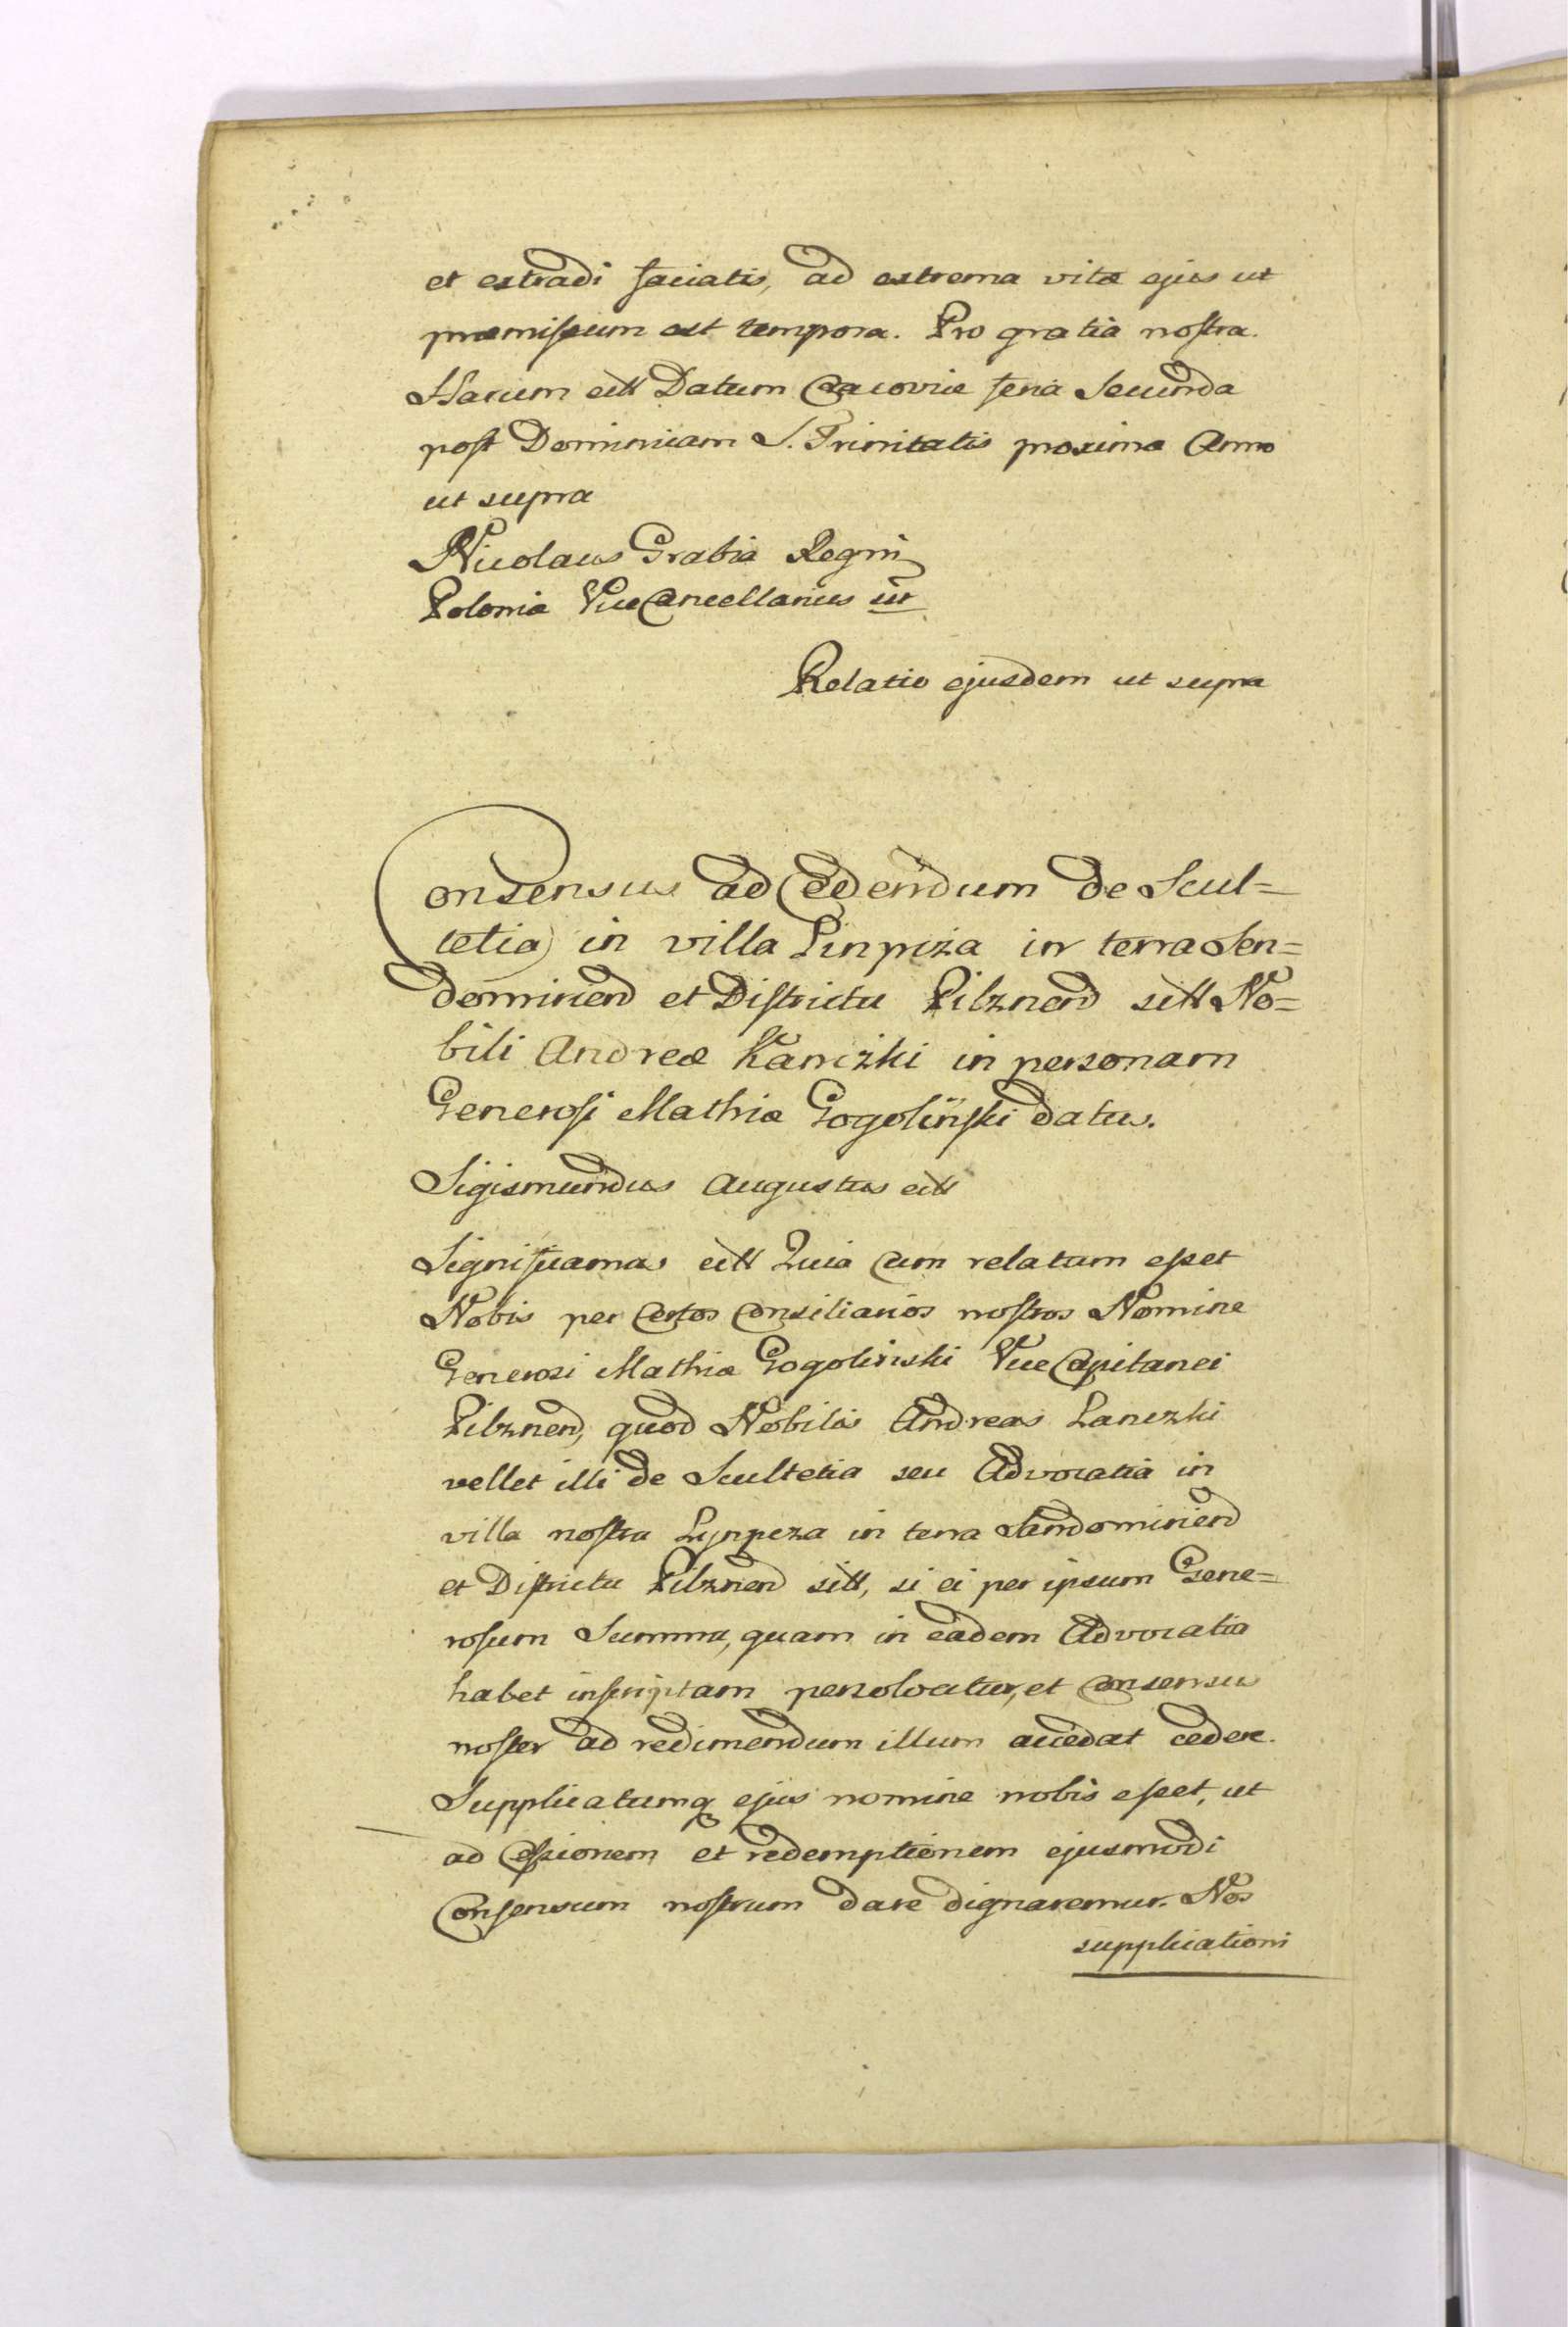 et extradi faciatis, ad extrema vitæ ejus ut
præmissum est tempora. Pro gratia nostra.
Harum ett Datum Cracoviæ feria Secunda
post Dominicam S. Trinitatis proxima Anno
ut supra
Nicolaus Grabia Regni
Poloniæ ViceCancellarius
Relatio ejusdem ut supra
Consensus ad Cedendum de Scul=
tetia in villa Linpiza in terra Sen=
dominen et Districtu Pilznen sitt No=
bili Andreæ Kanczki in personam
Generosi Mathiæ Gogolinski datus.
Sigismundus Augustus ett
Significamus ett Quia Cum relatum esset
Nobis per Certos Consiliarios nostros Nomine
Generosi Mathiæ Gogolinski ViceCapitanei
Pilznen, quod Nobilis Andreas Lanczki
vellet illi de Scultetia seu Advocatia in
villa nostra Lynpeza in terra Sandominien
et Districtu Pilznen sitt, si ei per ipsum Gene=
rosum Summa, quam in eadem Advocatia
habet inscriptam persolvatur, et Consensus
noster ad redimendum illum accedat cedere.
Supplicatumq ejus nomine nobis esset, ut
ad Cessionem et redemptionem ejusmodi
Consensum nostrum dare dignaremur. Nos
supplicationi